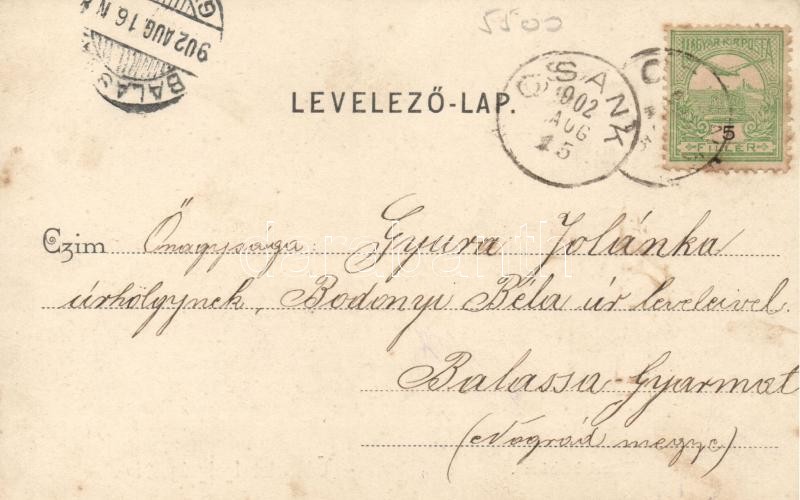 5500
902 AUG 16 N
BALAS
G
LEVELEZŐ-LAP.
CSANK
902
AUG
15
C
MAGYAR KIR. POSTA
5
FILLÉR
Czim Őnagysága Gyura Jolánka
darabanth
úrhölgynek, Bodonyi Béla úr leveleivel.
Balassa-Gyarmat
(Nógrád megye)